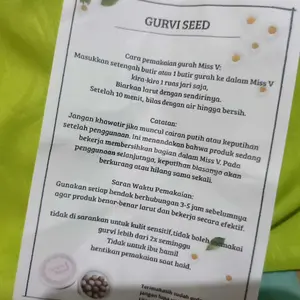 GURVI SEED
Cara pemakaian gurah Miss V:
Masukkan setengah butir atau 1 butir gurah ke dalam Miss V
kira-kira 1 ruas jari saja,
Biarkan larut dengan sendirinya.
Setelah 10 menit, bilas dengan air hingga bersih.
Catatan:
Jangan khawatir jika muncul cairan putih atau keputihan
setelah penggunaan. Ini menandakan bahwa produk sedang
bekerja membersihkan bagian dalam Miss V. Pada
penggunaan selanjutnya, keputihan biasanya akan
berkurang atau hilang sama sekali.
Saran Waktu Pemakaian:
Gunakan setiap hendak berhubungan 3-5 jam sebelumnya
agar produk benar-benar larut dan bekerja secara efektif.
tidak di sarankan untuk kulit sensitif, tidak boleh memakai
gurvi lebih dari 2x seminggu
Tidak untuk ibu hamil
hentikan pemakaian saat haid.
Terimakasih sudah